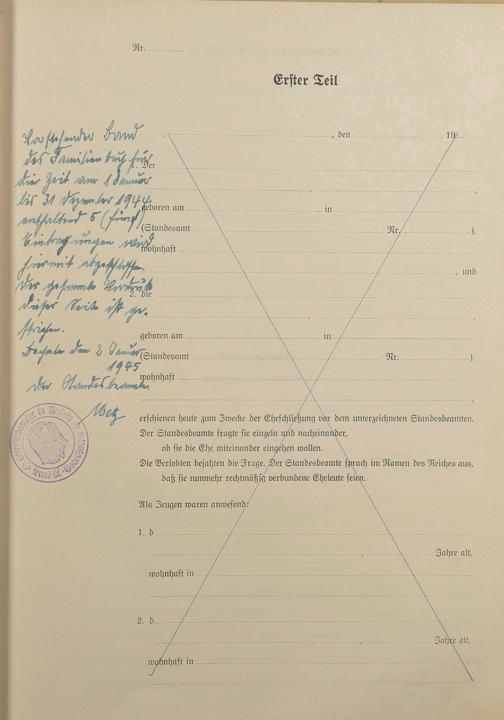 Nr.
Erster Teil
, den 19
1. Der
,
geboren am in
(Standesamt Nr. ),
wohnhaft
, und
2. die
,
geboren am in
(Standesamt Nr. ),
wohnhaft
,
erschienen heute zum Zwecke der Eheschließung vor dem unterzeichneten Standesbeamten.
Der Standesbeamte fragte sie einzeln und nacheinander,
ob sie die Ehe miteinander eingehen wollen.
Die Verlobten bejahten die Frage. Der Standesbeamte sprach im Namen des Reiches aus,
daß sie nunmehr rechtmäßig verbundene Eheleute seien.
Als Zeugen waren anwesend:
1. d
, Jahre alt,
wohnhaft in
2. d
, Jahre alt,
wohnhaft in
Vorstehender Band
des Familienbuch für
die Zeit am 1 Januar
bis 31 Dezember 1944
enthaltend 5 (fünf)
Eintragungen wird
hiermit abgeschlossen.
Der gesamte Vordruck
dieser Seite ist ge-
strichen.
den 2 Januar
1945
Der Standesbeamte
Metz